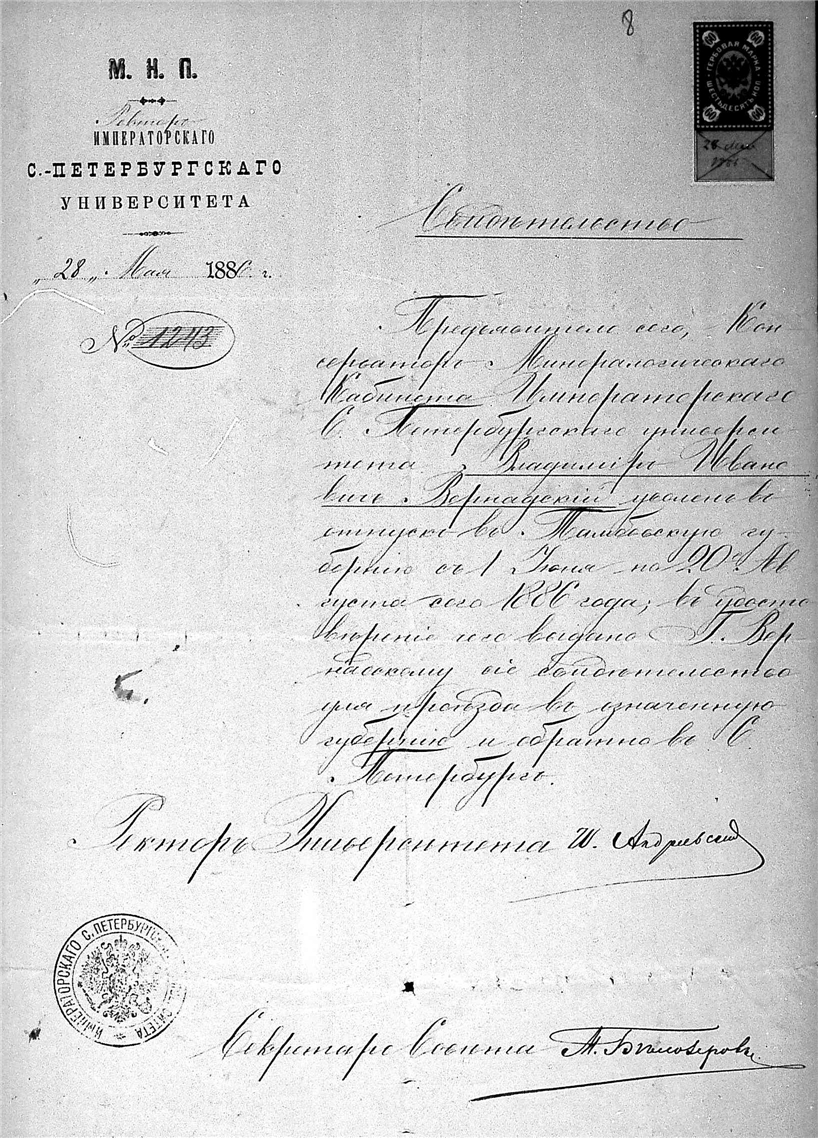 8
М. Н. П.
Ректоръ
ИМПЕРАТОРСКАГО
С.-ПЕТЕРБУРГСКАГО
УНИВЕРСИТЕТА
„28„ Мая 1886 г.
№ 1243
ГЕРБОВАЯ МАРКА
ШЕСТЬДЕСЯТЪ КОП
60 60
60 60
28 Мая
1886
Свидѣтельство
Предъявитель сего, Кон-
серваторъ Минералогическаго
Кабинета Императорскаго
С. Петербургскаго универси-
тета Владиміръ Ивано
вичъ Вернадскій уволенъ въ
отпускъ въ Тамбовскую гу-
бернію съ 1 Іюня по 20е Ав
густа сего 1886 года; въ удосто
вѣреніе чего выдано Г. Вер
надскому сіе свидѣтельство
для проѣзда въ означенную
губернію и обратно въ С.
Петербургъ.
Ректоръ Университета И. Андреевскій
ИМПЕРАТОРСКАГО С. ПЕТЕРБУРГСК СИТЕТА
Секретарь Совѣта А. Бѣлозеровъ